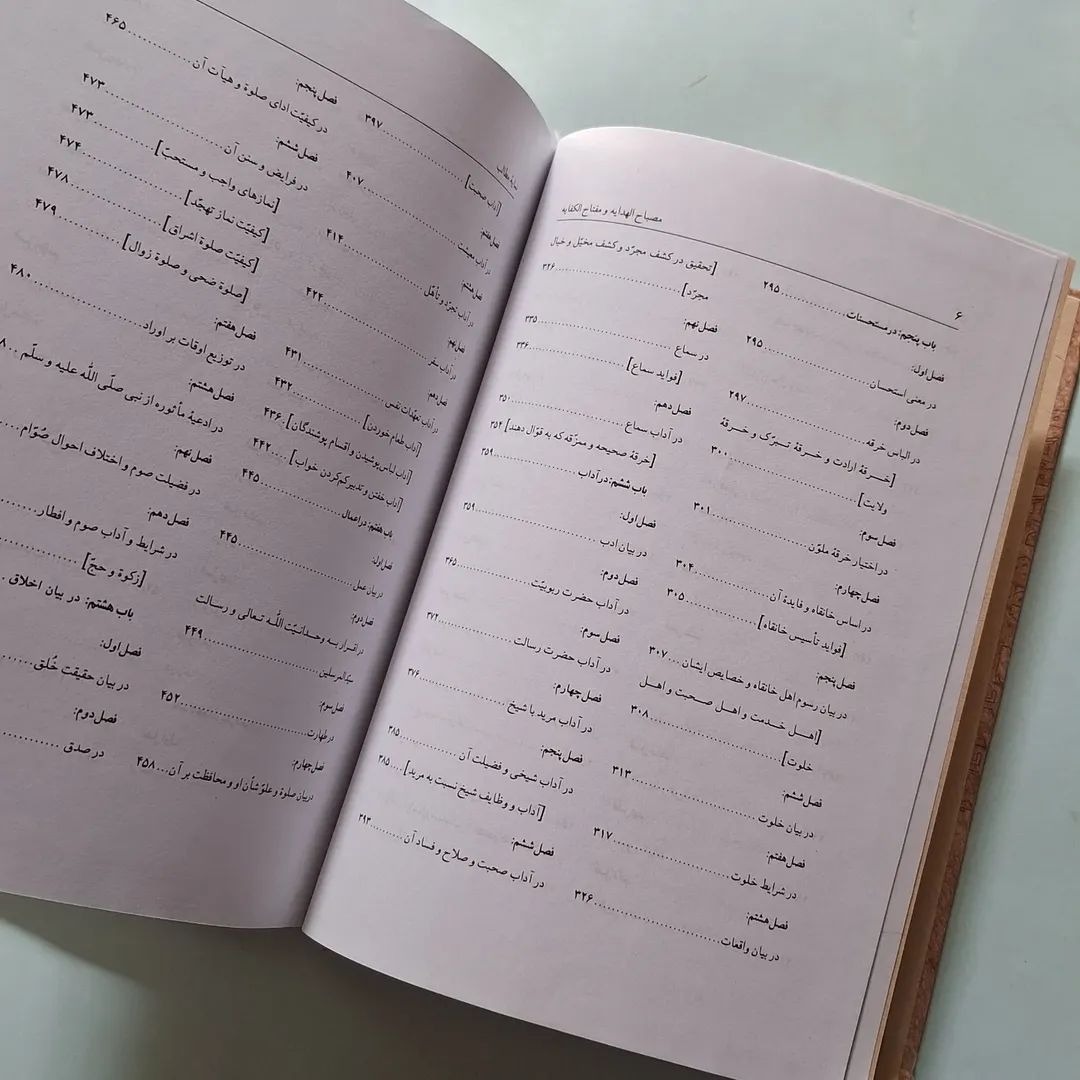 ۶
مصباح الهدایه و مفتاح الکفایه
باب پنجم: در مستحسنات ............ ۲۹۵
فصل اول:
در معنی استحسان ............ ۲۹۵
فصل دوم:
در الباس خرقه ............ ۲۹۷
[خرقهٔ ارادت و خرقهٔ تبرّک و خرقهٔ
ولایت] ............ ۳۰۰
فصل سوم:
در اختیار خرقهٔ ملوّن ............ ۳۰۱
فصل چهارم:
در اساس خانقاه و فایدهٔ آن ............ ۳۰۴
[فواید تأسیس خانقاه] ............ ۳۰۵
فصل پنجم:
در بیان رسوم اهل خانقاه و خصایص ایشان ... ۳۰۷
[اهل خدمت و اهل صحبت و اهل
خلوت] ............ ۳۰۸
فصل ششم:
در بیان خلوت ............ ۳۱۳
فصل هفتم:
در شرایط خلوت ............ ۳۱۷
فصل هشتم:
در بیان واقعات ............ ۳۲۶
[تحقیق در کشف مجرّد و کشف مخیّل و خیال
مجرّد] ............ ۳۲۶
فصل نهم:
در سماع ............ ۳۳۵
[فواید سماع] ............ ۳۳۶
فصل دهم:
در آداب سماع ............ ۳۵۰
[خرقهٔ صحیحه و ممزّقه که به قوّال دهند] ۳۵۴
باب ششم: در آداب ............ ۳۵۹
فصل اول:
در بیان ادب ............ ۳۵۹
فصل دوم:
در آداب حضرت ربوبیّت ............ ۳۶۵
فصل سوم:
در آداب حضرت رسالت ............ ۳۷۲
فصل چهارم:
در آداب مرید با شیخ ............ ۳۷۶
فصل پنجم:
در آداب شیخی و فضیلت آن ............ ۳۸۵
[آداب و وظایف شیخ نسبت به مرید] .... ۳۸۵
فصل ششم:
در آداب صحبت و صلاح و فساد آن ......... ۳۹۳
مطالب
[آداب صحبت] ............ ۳۹۷
فصل هفتم:
در آداب معیشت ............ ۴۰۷
فصل هشتم:
در آداب تجرّد و تأهّل ............ ۴۱۴
فصل نهم:
در آداب سفر ............ ۴۲۴
فصل دهم:
در آداب تعهّدات نفس ............ ۴۳۱
[آداب طعام خوردن] ............ ۴۳۲
[آداب لباس پوشیدن و اقسام پوشندگان] . ۴۳۶
[آداب خفتن و تدبیر کم‌کردن خواب] .... ۴۴۲
باب هفتم: در اعمال ............ ۴۴۵
فصل اول:
در بیان عمل ............ ۴۴۵
فصل دوم:
در اقرار به وحدانیّت اللّه تعالی و رسالت
سیّدالمرسلین ............ ۴۴۹
فصل سوم:
در طهارت ............ ۴۵۲
فصل چهارم:
در بیان صلوة و علوّ شأن او و محافظت بر آن ... ۴۵۸
فصل پنجم:
در کیفیّت ادای صلوة و هیآت آن ............ ۴۶۵
فصل ششم:
در فرایض و سنن آن ............ ۴۷۳
[نمازهای واجب و مستحبّ] ............ ۴۷۳
[کیفیّت نماز تهجّد] ............ ۴۷۴
[کیفیّت صلوة اشراق] ............ ۴۷۸
[صلوة ضحی و صلوة زوال] ............ ۴۷۹
فصل هفتم:
در توزیع اوقات بر اوراد ............ ۴۸۰
فصل هشتم:
در ادعیهٔ مأثوره از نبی صلّی اللّه علیه و سلّم
فصل نهم:
در فضیلت صوم و اختلاف احوال صُوّام
فصل دهم:
در شرایط و آداب صوم و افطار
[زکوة و حجّ]
باب هشتم: در بیان اخلاق
فصل اول:
در بیان حقیقت خُلق
فصل دوم:
در صدق